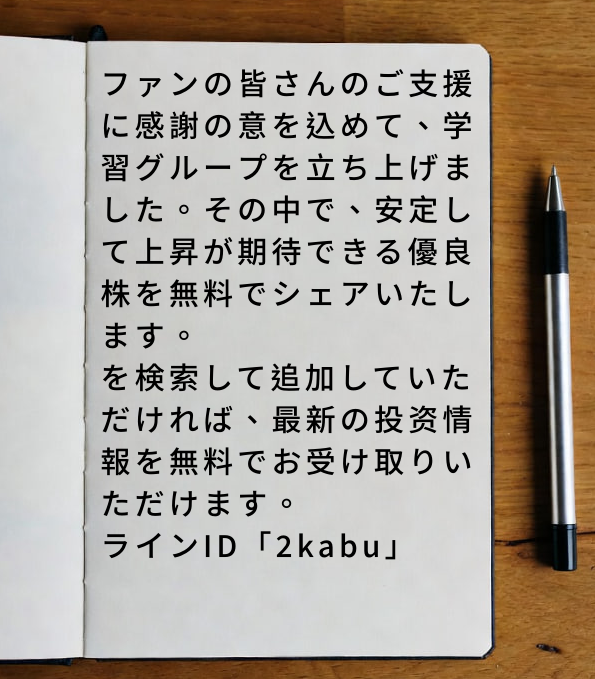 ファンの皆さんのご支援
に感謝の意を込めて、学
習グループを立ち上げま
した。その中で、安定し
て上昇が期待できる優良
株を無料でシェアいたし
ます。
を検索して追加していた
だければ、最新の投资情
報を無料でお受け取りい
ただけます。
ラインID「2kabu」